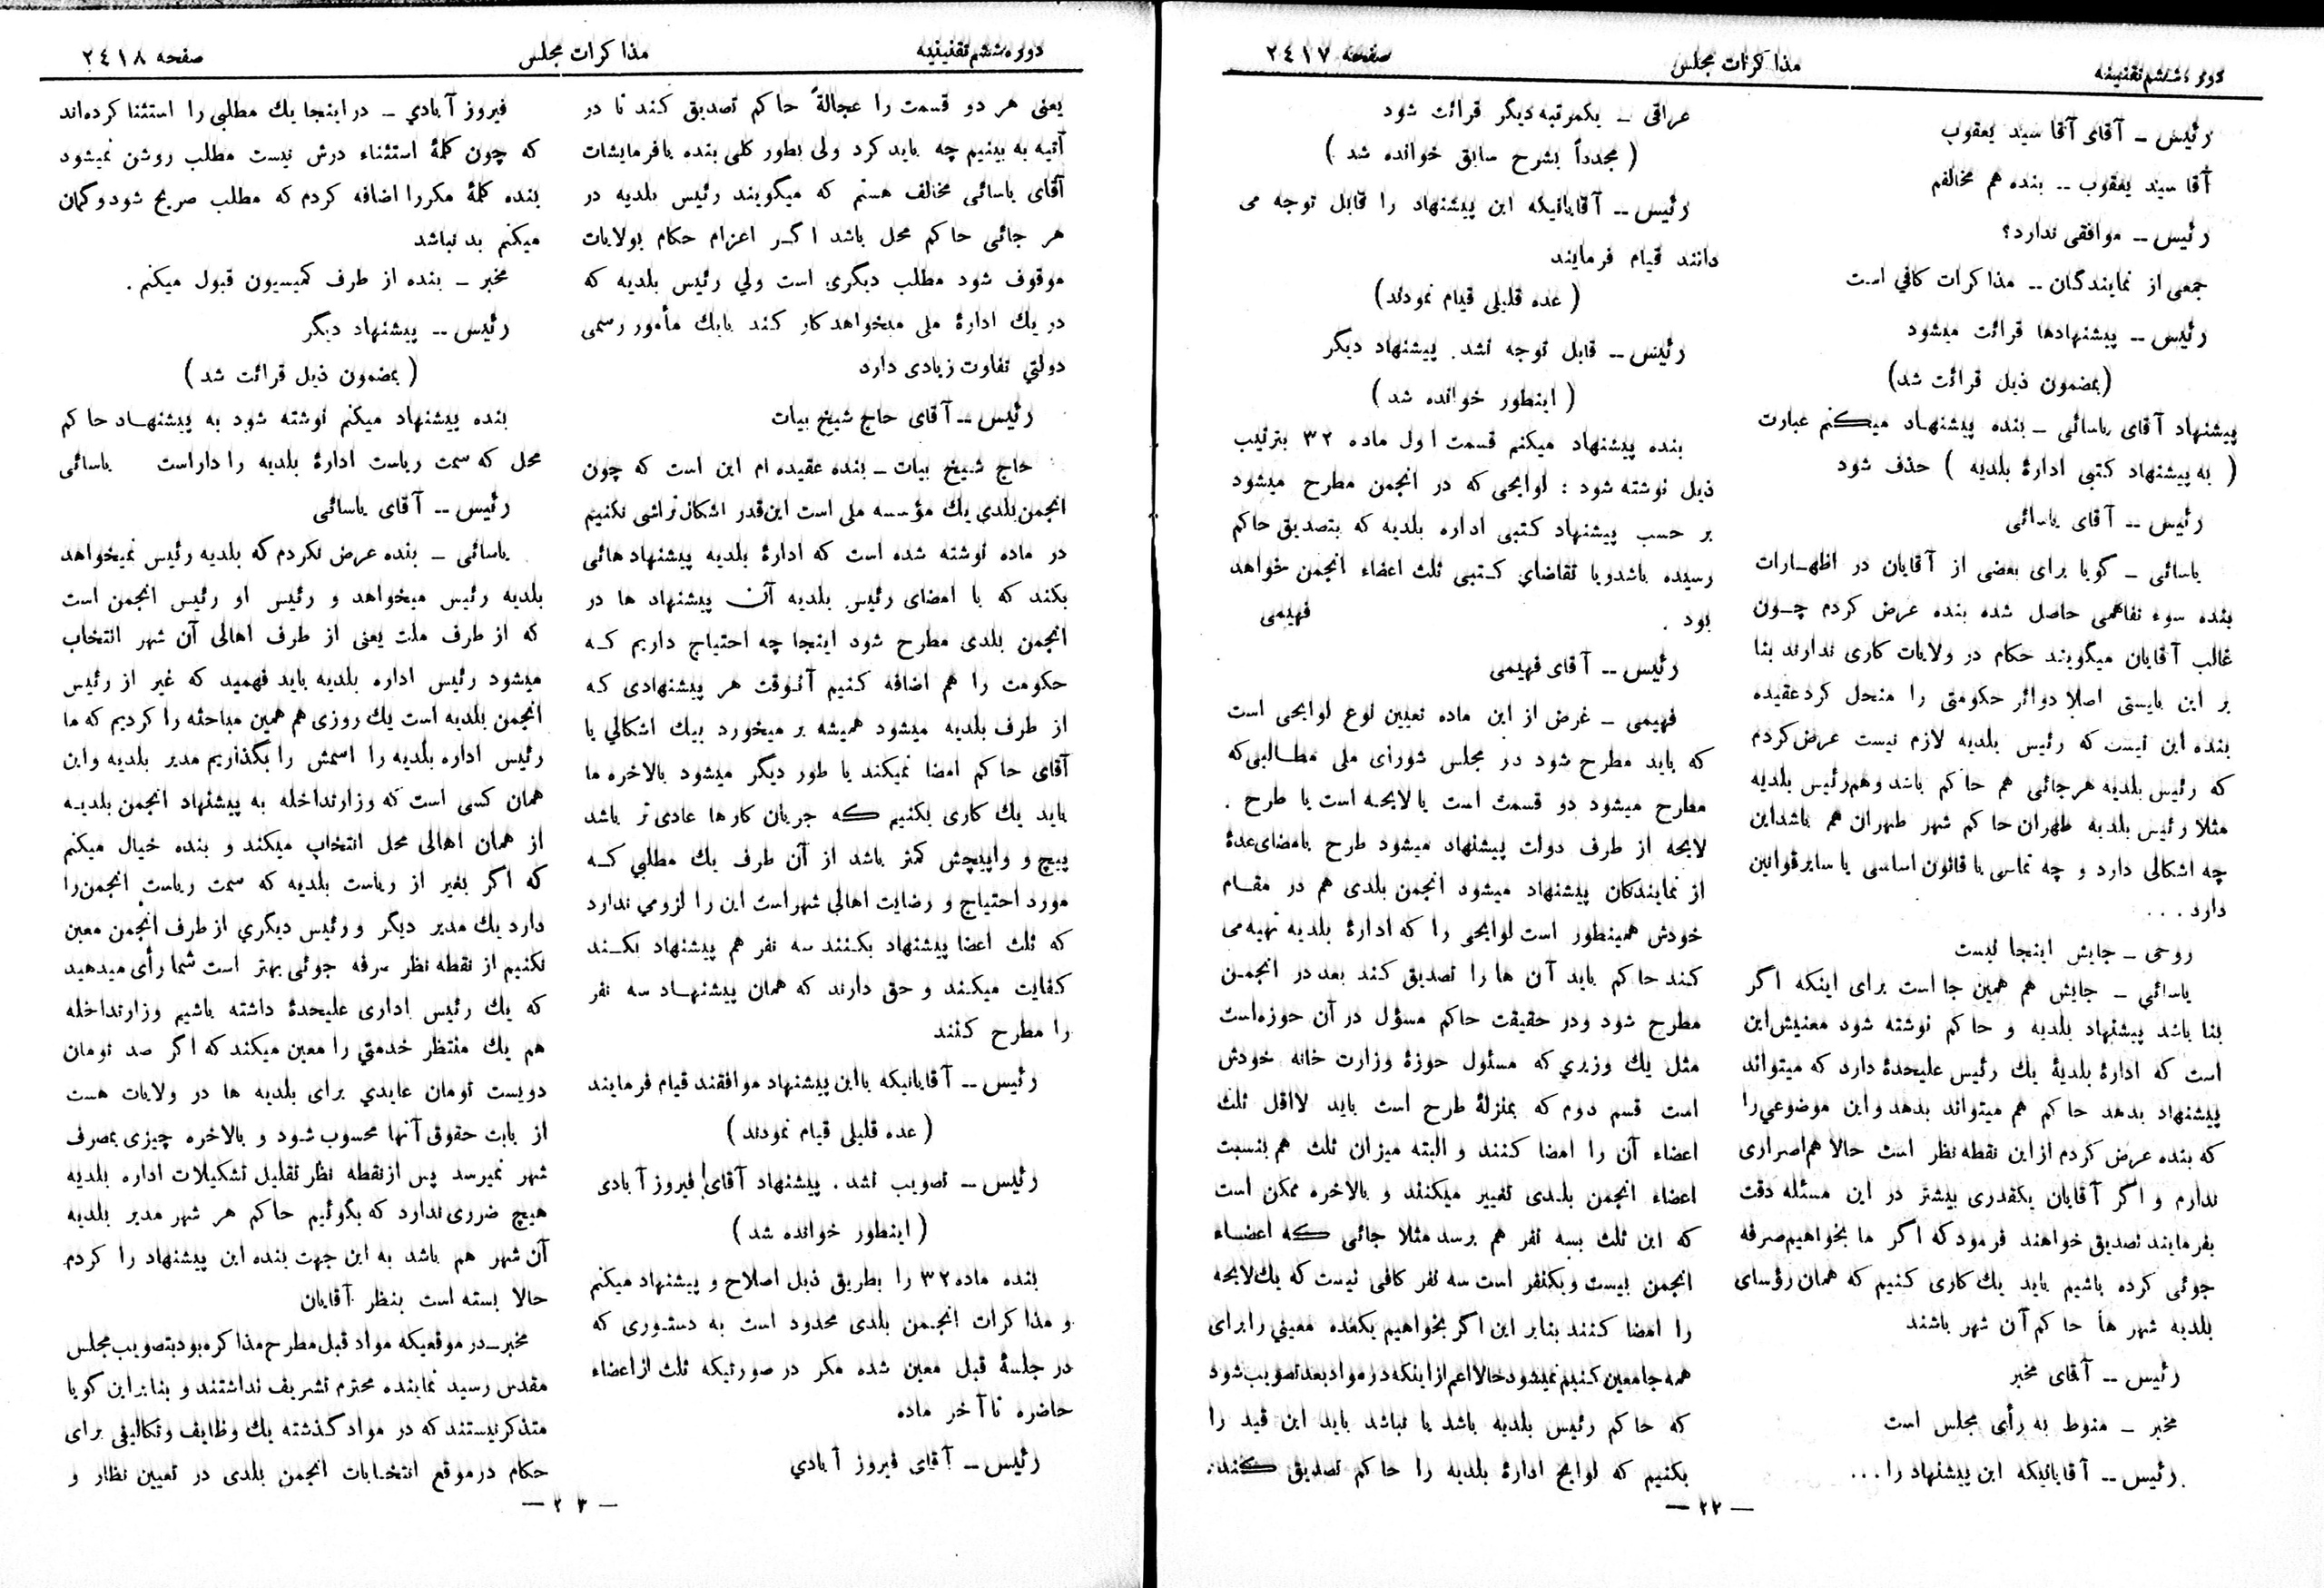 دوره ششم تقنینیه
مذاکرات مجلس
صفحه ۲٤۱۷
رئیس ــ آقای آقا سید یعقوب
آقا سید یعقوب ــ بنده هم مخالفم
رئیس ــ موافقی ندارد؟
جمعی از نمایندگان ــ مذاکرات کافی است
رئیس ــ پیشنهادها قرائت میشود
(بمضمون ذیل قرائت شد)
پیشنهاد آقای یاسائی ــ بنده پیشنهاد میکنم عبارت
( به پیشنهاد کتبی ادارهٔ بلدیه ) حذف شود
رئیس ــ آقای یاسائی
یاسائی ــ گویا برای بعضی از آقایان در اظهارات
بنده سوء تفاهمی حاصل شده بنده عرض کردم چون
غالب آقایان میگویند حکام در ولایات کاری ندارند بنا
بر این بایستی اصلا دوائر حکومتی را منحل کرد عقیده
بنده این نیست که رئیس بلدیه لازم نیست عرض کردم
که رئیس بلدیه هرجائی هم حاکم باشد وهم رئیس بلدیه
مثلا رئیس بلدیه طهران حاکم شهر طهران هم باشد این
چه اشکالی دارد و چه تماسی با قانون اساسی یا سایر قوانین
دارد ...
روحی ــ جایش اینجا نیست
یاسائی ــ جایش هم همین جا است برای اینکه اگر
بنا باشد پیشنهاد بلدیه و حاکم نوشته شود معنیش این
است که ادارهٔ بلدیهٔ یك رئیس علیحدهٔ دارد که میتواند
پیشنهاد بدهد حاکم هم میتواند بدهد و این موضوعی را
که بنده عرض کردم از این نقطه نظر است حالا هم اصراری
ندارم و اگر آقایان یکقدری بیشتر در این مسئله دقت
بفرمایند تصدیق خواهند فرمود که اگر ما بخواهیم صرفه
جوئی کرده باشیم باید یك کاری کنیم که همان رؤسای
بلدیه شهر ها حاکم آن شهر باشند
رئیس ــ آقای مخبر
مخبر ــ منوط به رأی مجلس است
رئیس ــ آقایانیکه این پیشنهاد را ...
عراقی ــ یکمرتبه دیگر قرائت شود
( مجدداً بشرح سابق خوانده شد )
رئیس ــ آقایانیکه این پیشنهاد را قابل توجه می
دانند قیام فرمایند
(عده قلیلی قیام نمودند)
رئیس ــ قابل توجه نشد. پیشنهاد دیگر
( اینطور خوانده شد )
بنده پیشنهاد میکنم قسمت اول ماده ۳۲ بترتیب
ذیل نوشته شود : لوایحی که در انجمن مطرح میشود
بر حسب پیشنهاد کتبی اداره بلدیه که بتصدیق حاکم
رسیده باشد و یا تقاضای کتبی ثلث اعضاء انجمن خواهد
بود . فهیمی
رئیس ــ آقای فهیمی
فهیمی ــ غرض از این ماده تعیین نوع لوایحی است
که باید مطرح شود در مجلس شورای ملی مطالبی که
مطرح میشود دو قسمت است یا لایحه است یا طرح .
لایحه از طرف دولت پیشنهاد میشود طرح بامضای عدهٔ
از نمایندکان پیشنهاد میشود انجمن بلدی هم در مقام
خودش همینطور است لوایحی را که ادارهٔ بلدیه تهیه می
کند حاکم باید آن ها را تصدیق کند بعد در انجمن
مطرح شود ودر حقیقت حاکم مسؤل در آن حوزه است
مثل یك وزیری که مسئول حوزهٔ وزارت خانه خودش
است قسم دوم که بمنزلهٔ طرح است باید لااقل ثلث
اعضاء آن را امضا کنند و البته میزان ثلث هم بنسبت
اعضاء انجمن بلدی تغییر میکنند و بالاخره ممکن است
که این ثلث بسه نفر هم برسد مثلا جائی که اعضاء
انجمن بیست و یکنفر است سه نفر کافی نیست که یك لایحه
را امضا کنند بنابر این اگر بخواهیم یکعده معینی را برای
همه جا معین کنیم نمیشود حالا اعم از اینکه در مواد بعد تصویب شود
که حاکم رئیس بلدیه باشد یا نباشد باید این قید را
بکنیم که لوایح ادارهٔ بلدیه را حاکم تصدیق کند.
— ۲۲ —
دوره ششم تقنینیه
مذاکرات مجلس
صفحه ۲٤۱۸
یعنی هر دو قسمت را عجالةً حاکم تصدیق کند تا در
آتیه به بینیم چه باید کرد ولی بطور کلی بنده بافرمایشات
آقای یاسائی مخالف هستم که میگویند رئیس بلدیه در
هر جائی حاکم محل باشد اگر اعزام حکام بولایات
موقوف شود مطلب دیگری است ولي رئیس بلدیه که
در یك ادارهٔ ملی میخواهد کار کند بایك مأمور رسمی
دولتي تفاوت زیادی دارد
رئیس ــ آقای حاج شیخ بیات
حاج شیخ بیات ــ بنده عقیده ام این است که چون
انجمن بلدی یك مؤسسه ملی است این قدر اشکال تراشی نکنیم
در ماده نوشته شده است که ادارهٔ بلدیه پیشنهاد هائی
بکند که با امضای رئیس بلدیه آن پیشنهاد ها در
انجمن بلدی مطرح شود اینجا چه احتیاج داریم که
حکومت را هم اضافه کنیم آنوقت هر پیشنهادی که
از طرف بلدیه میشود همیشه بر میخورد بیك اشکالي یا
آقای حاکم امضا نمیکند یا طور دیگر میشود بالاخره ما
باید یك کاری بکنیم که جریان کارها عادی تر باشد
پیچ و واپیچش کمتر باشد از آن طرف یك مطلبی که
مورد احتیاج و رضایت اهالی شهر است این را لزومی ندارد
که ثلث اعضا پیشنهاد بکنند سه نفر هم پیشنهاد بکنند
کفایت میکند و حق دارند که همان پیشنهاد سه نفر
را مطرح کنند
رئیس ــ آقایانیکه بااین پیشنهاد موافقند قیام فرمایند
( عده قلیلی قیام نمودند )
رئیس ــ تصویب نشد . پیشنهاد آقای فیروز آبادی
( اینطور خوانده شد )
بنده ماده ۳۲ را بطریق ذیل اصلاح و پیشنهاد میکنم
و مذاکرات انجمن بلدی محدود است به دستوری که
در جلسهٔ قبل معین شده مکر در صورتیکه ثلث از اعضاء
حاضره تا آخر ماده
رئیس ــ آقای فیروز آبادي
فیروز آبادي ــ در اینجا یك مطلبی را استثنا کرده‌اند
که چون کلمهٔ استثناء درش نیست مطلب روشن نمیشود
بنده کلمهٔ مکر را اضافه کردم که مطلب صریح شود وگمان
میکنم بد نباشد
مخبر ــ بنده از طرف کمیسیون قبول میکنم .
رئیس ــ پیشنهاد دیگر
( بمضمون ذیل قرائت شد )
بنده پیشنهاد میکنم نوشته شود به پیشنهاد حاکم
محل که سمت ریاست ادارهٔ بلدیه را داراست یاسائی
رئیس ــ آقای یاسائی
یاسائی ــ بنده عرض نکردم که بلدیه رئیس نمیخواهد
بلدیه رئیس میخواهد و رئیس او رئیس انجمن است
که از طرف ملت یعنی از طرف اهالی آن شهر انتخاب
میشود رئیس اداره بلدیه باید فهمید که غیر از رئیس
انجمن بلدیه است یك روزی هم همین مباحثه را کردیم که ما
رئیس اداره بلدیه را اسمش را بگذاریم مدیر بلدیه و این
همان کسی است که وزارتداخله به پیشنهاد انجمن بلدیه
از همان اهالی محل انتخاب میکند و بنده خیال میکنم
که اگر بغیر از ریاست بلدیه که سمت ریاست انجمن را
دارد یك مدیر دیگر و رئیس دیگری از طرف انجمن معین
نکنیم از نقطه نظر صرفه جوئی بهتر است شما رأی میدهید
که یك رئیس اداری علیحدهٔ داشته باشیم وزارتداخله
هم یك منتظر خدمتی را معین میکند که اگر صد تومان
دویست تومان عایدی برای بلدیه ها در ولایات هست
از بابت حقوق آنها محسوب شود و بالاخره چیزی بمصرف
شهر نمیرسد پس از نقطه نظر تقلیل تشکیلات اداره بلدیه
هیچ ضرری ندارد که بگوئیم حاکم هر شهر مدیر بلدیه
آن شهر هم باشد به این جهت بنده این پیشنهاد را کردم
حالا بسته است بنظر آقایان
مخبر ــ در موقعیکه مواد قبل مطرح مذاکره بود بتصویب مجلس
مقدس رسید نماینده محترم تشریف نداشتند و بنابراین گویا
متذکر نیستند که در مواد گذشته یك وظایف و تکالیفی برای
حکام در موقع انتخابات انجمن بلدی در تعیین نظار و
— ۲۳ —